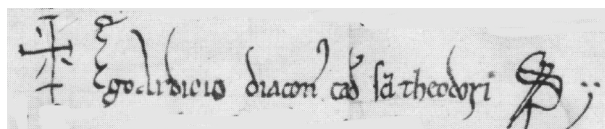 + Ego Ardicio diacon̄ card sc̄i theodori SS